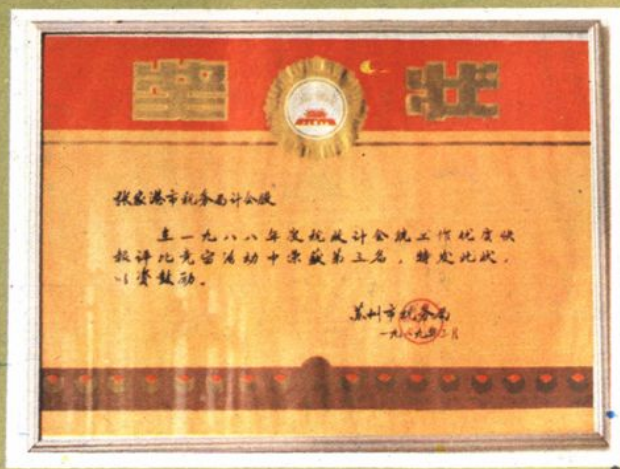 奖状
张家港市税务局计会股
在一九八八年度税政计会统工作优质快
报评比竞赛活动中荣获第三名，特发此状，
以资鼓励。
苏州市税务局
一九八九年二月